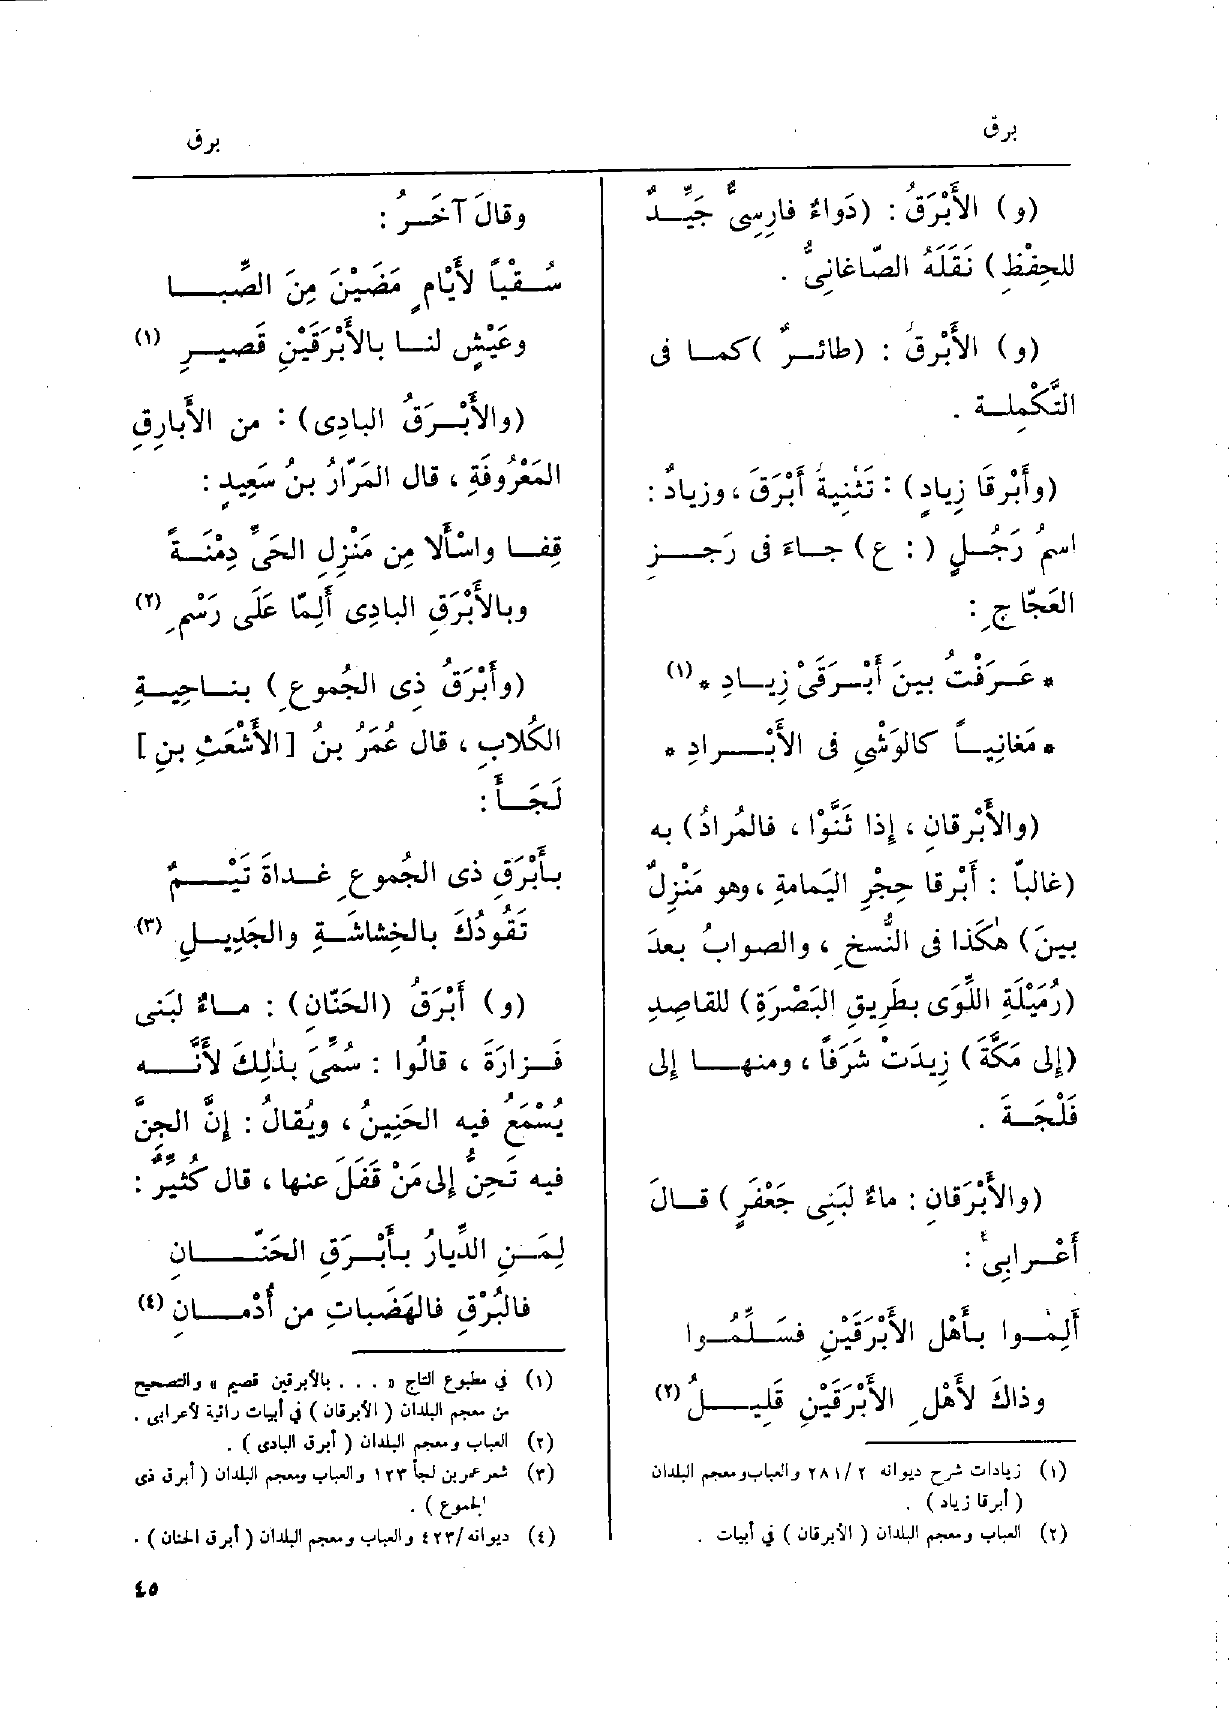 برق
برق
(و) الأَبْرَقُ : (دَواءٌ فارِسِىٌّ جَيِّـدٌ
للحِفْظِ) نَقَلَهُ الصّاغانِىُّ .
(و) الأَبْرقُ : (طائـرٌ )كمـا فى
التَّكْمِلـة .
(وأَبْرقَا زِيادٍ) : تَثْنِيةُ أَبْرَقَ ، وزيادٌ :
اسمُ رَجُـلٍ ( : ع) جـاءَ فى رَجَــزِ
العَجّاجِ :
* عَـرَفْتُ بينَ أَبْـرَقَىْ زِيـادِ * (١)
* مَغانِيـاً كالوَشْىِ فى الأَبْــرادِ *
(والأَبْرقانِ ، إِذا ثَنَّوْا ، فالمُرادُ) به
(غالباً : أَبْرقا حِجْرِ اليَمامةِ ، وهو مَنْزِلٌ
بينَ) هٰكَذا فى النُّسخِ ، والصوابُ بعدَ
(رُمَيْلَةِ اللِّوَى بطَرِيقِ البَصْرَةِ) للقاصِدِ
(إِلى مَكَّةَ) زِيدَتْ شَرَفاً ، ومنهـا إِلى
فَلْجَـةَ .
(والأَبْرَقانِ : ماءٌ لبَنِى جَعْفَرٍ ) قـالَ
أَعْـرابِىٌّ :
أَلِمُّـوا بـأَهْلِ الأَبْرَقَيْنِ فسَـلِّمُـوا
وذاكَ لأَهْلِ الأَبْرَقَيْنِ قَلِيـلُ (٢)
(١) زيادات شرح ديوانه ٢٨١/٢ والعباب ومعجم البلدان
( أبرقا زياد ) .
(٢) العباب ومعجم البلدان ( الأبرقان ) في أبيات .
وقالَ آخَـرُ :
سُـقْياً لأَيّامٍ مَضَيْنَ مِنَ الصِّبـا
وعَيْشٍ لنـا بالأَبْرَقَيْنِ قَصيـرِ (١)
(والأَبْـرَقُ البادِى) : من الأَبارِقِ
المَعْرُوفَةِ ، قال المَرّارُ بنُ سَعِيدٍ :
قِفـا واسْأَلا مِن مَنْزِلِ الحَىِّ دِمْنَـةً
وبالأَبْرَقِ البادِى أَلِمّا عَلَى رَسْمِ (٢)
(وأَبْرَقُ ذِى الجُموعِ ) بنـاحِيـةِ
الكُلابِ ، قال عُمَرُ بنُ [الأَشْعَثِ بنِ]
لَجَـأَ :
بـأَبْرَقِ ذى الجُموعِ غـداةَ تَيْـمٌ
تَقُودُكَ بالخِشاشَـةِ والجَدِيـلِ (٣)
(و) أَبْرَقُ (الحَنّانِ) : مـاءٌ لبَنِى
فَـزارَةَ ، قالُوا : سُمِّىَ بذٰلِكَ لأَنَّـه
يُسْمَعُ فيه الحَنِينُ ، ويُقالُ : إِنَّ الجِنَّ
فيه تَحِنُّ إِلى مَنْ قَفَلَ عنها ، قال كُثَيِّرٌ :
لِمَـنِ الدِّيارُ بـأَبْـرَقِ الحَنّـانِ
فالبُرْقِ فالهَضَباتِ من أُدْمـانِ (٤)
(١) في مطبوع التاج « . . . بالأبرقين قصيم » والتصحيح
من معجم البلدان ( الأبرقان ) في أبيات رائية لأعرابى .
(٢) العباب ومعجم البلدان ( أبرق البادى ) .
(٣) شعر عمر بن لجأ ١٢٣ والعباب ومعجم البلدان ( أبرق ذى
الجموع ) .
(٤) ديوانه/٤٢٣ والعباب ومعجم البلدان ( أبرق الحنان ) .
٤٥